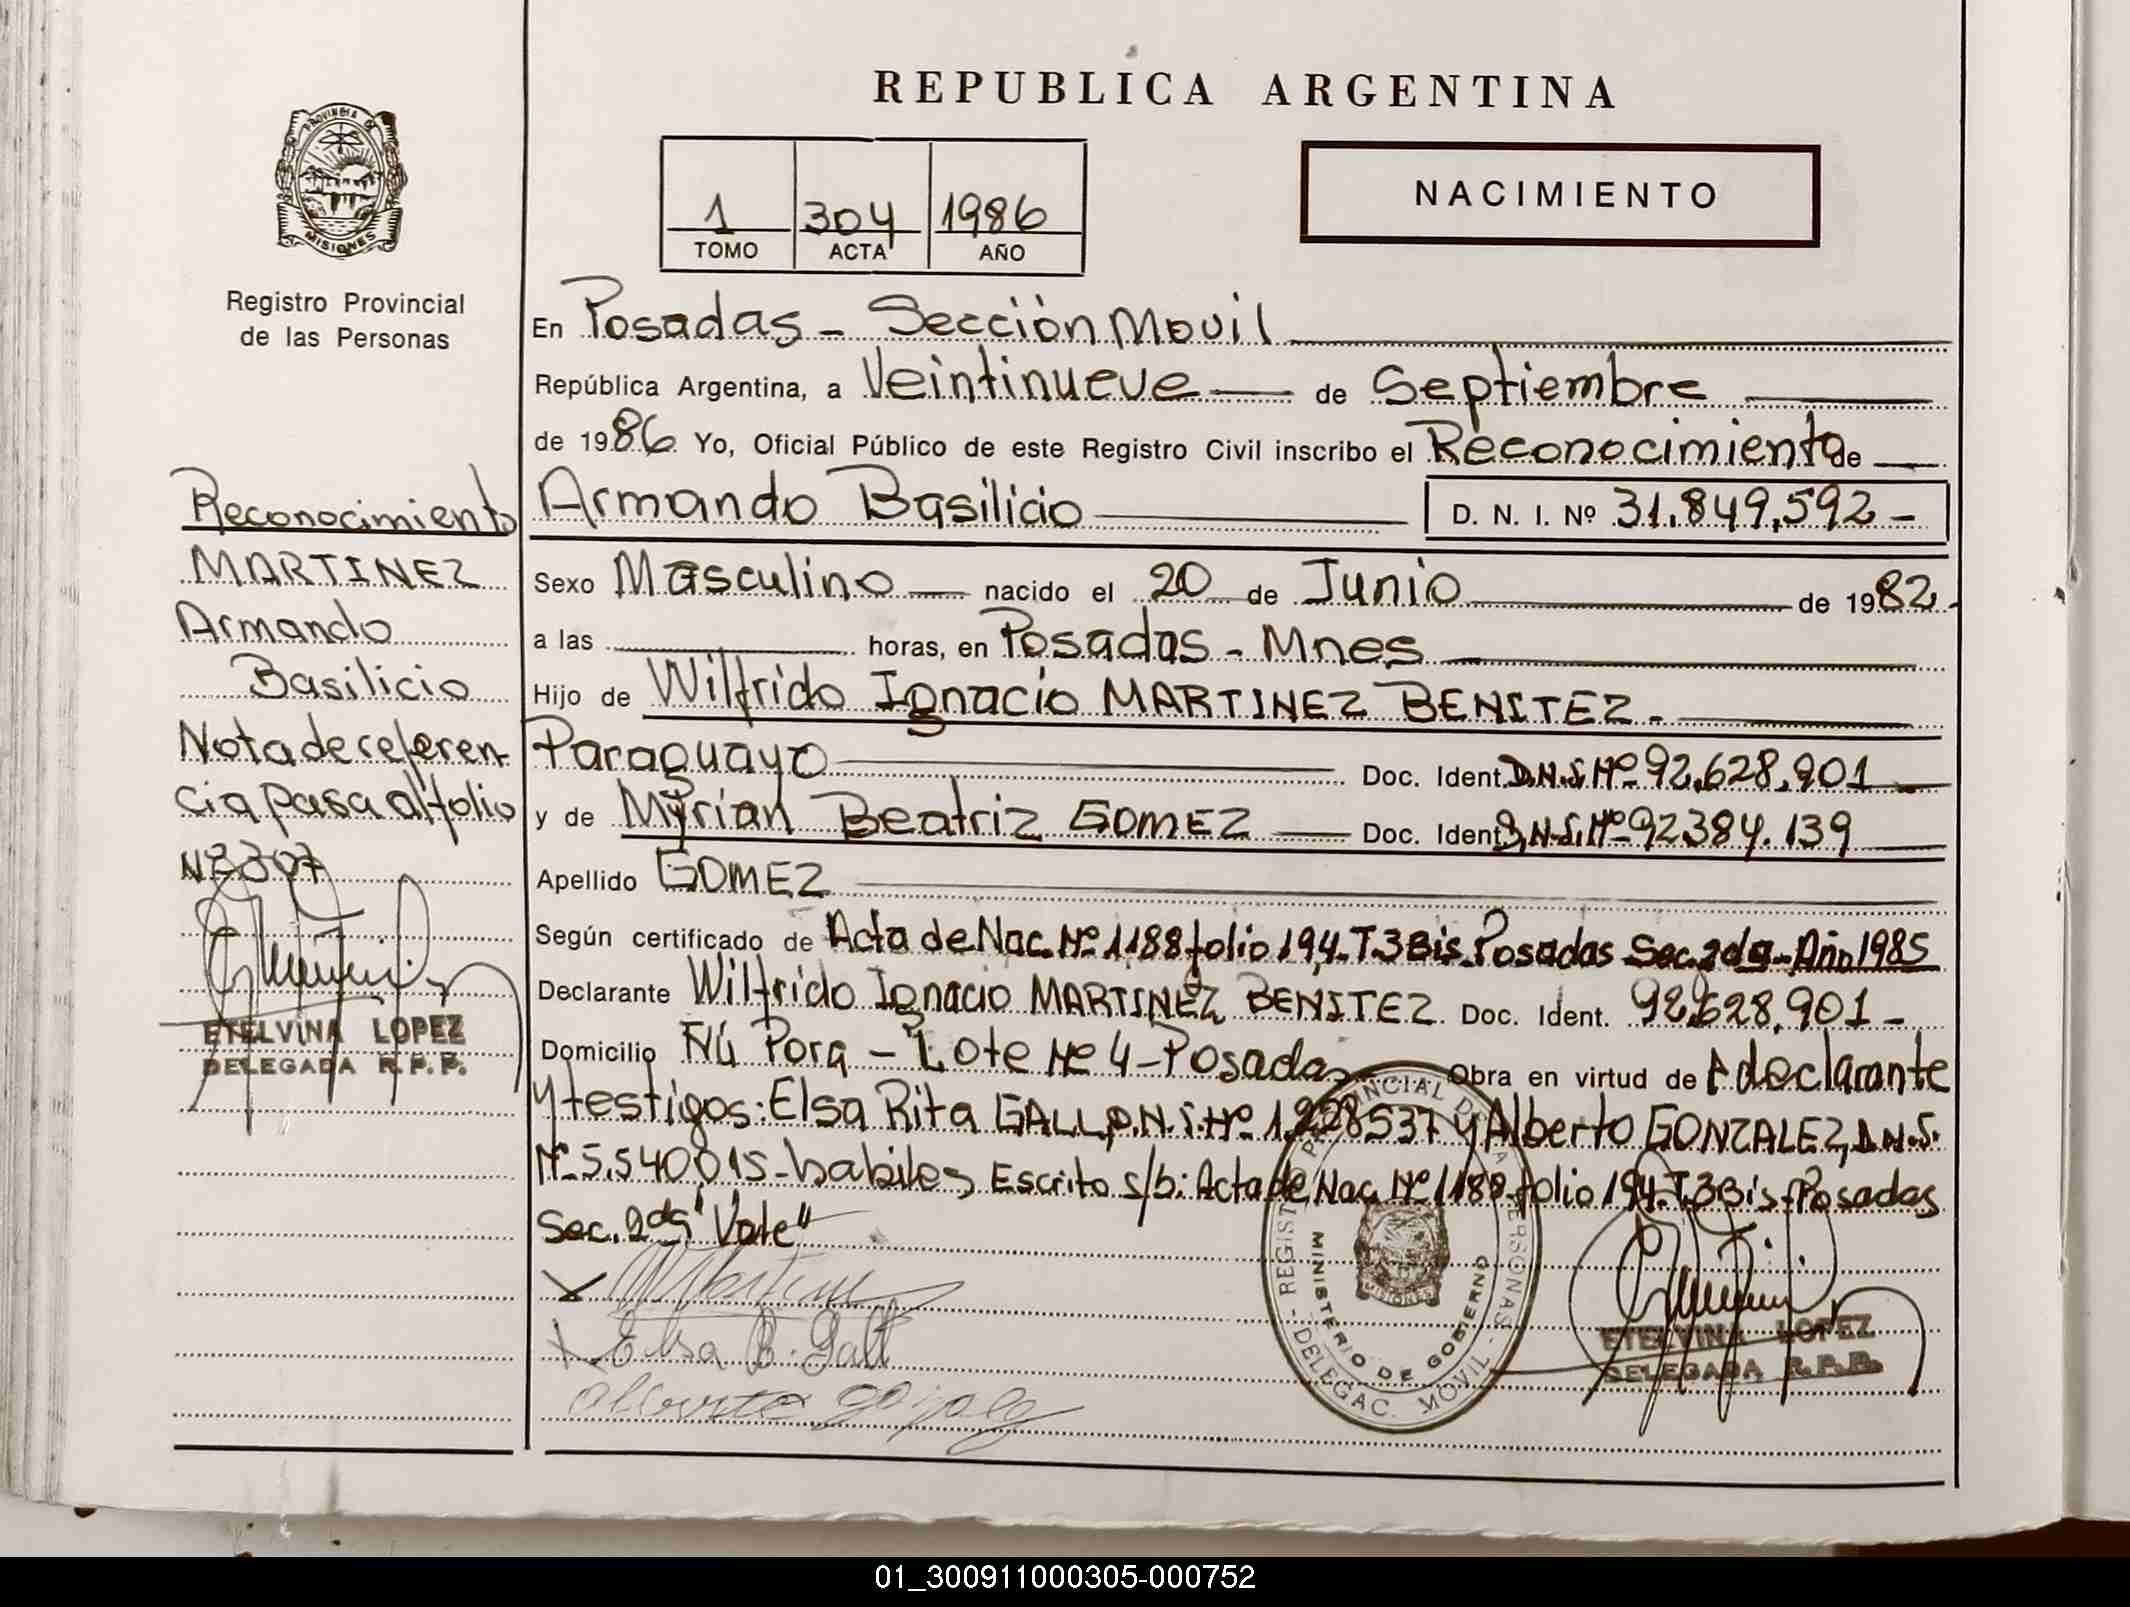 REPUBLICA ARGENTINA
PROVINCIA DE
MISIONES
Registro Provincial
de las Personas
1 304 1986
TOMO ACTA AÑO
NACIMIENTO
En Posadas - Sección Movil
República Argentina, a Veintinueve de Septiembre
de 1986 Yo, Oficial Público de este Registro Civil inscribo el Reconocimiento de
Armando Basilicio D. N. I. Nº 31.849.592 -
Sexo Masculino nacido el 20 de Junio de 1982.
a las horas, en Posadas - Mnes
Hijo de Wilfrido Ignacio MARTINEZ BENITEZ -
Paraguayo Doc. Ident. D.N.I. Nº 92.628.901
y de Myrian Beatriz GOMEZ Doc. Ident. D.N.I. Nº 92384.139
Apellido GOMEZ
Según certificado de Acta de Nac. Nº 1188 folio 194-T.3 Bis Posadas Sec. 2da - Año 1985
Declarante Wilfrido Ignacio MARTINEZ BENITEZ Doc. Ident. 92.628.901 -
Domicilio Ñú Pora - Lote Nº 4 - Posadas Obra en virtud de declarante
y testigos: Elsa Rita GALL, D.N.I. Nº 1.228537 y Alberto GONZALEZ, D.N.I.
Nº 5.540015 - habiles Escrito s/b: Acta de Nac. Nº 1188 folio 194-T.3 Bis - Posadas
Sec. 2da "Vale"
Elsa R. Gall
Alberto Gonzalez
REGISTRO PROVINCIAL DE LAS PERSONAS -
DELEGAC. MOVIL -
MINISTERIO DE GOBIERNO
MISIONES
ETELVINA LOPEZ
DELEGADA R.P.P.
Reconocimiento
MARTINEZ
Armando
Basilicio
Nota de referen
cia pasa al folio
Nº 307
ETELVINA LOPEZ
DELEGADA R.P.P.
01_300911000305-000752